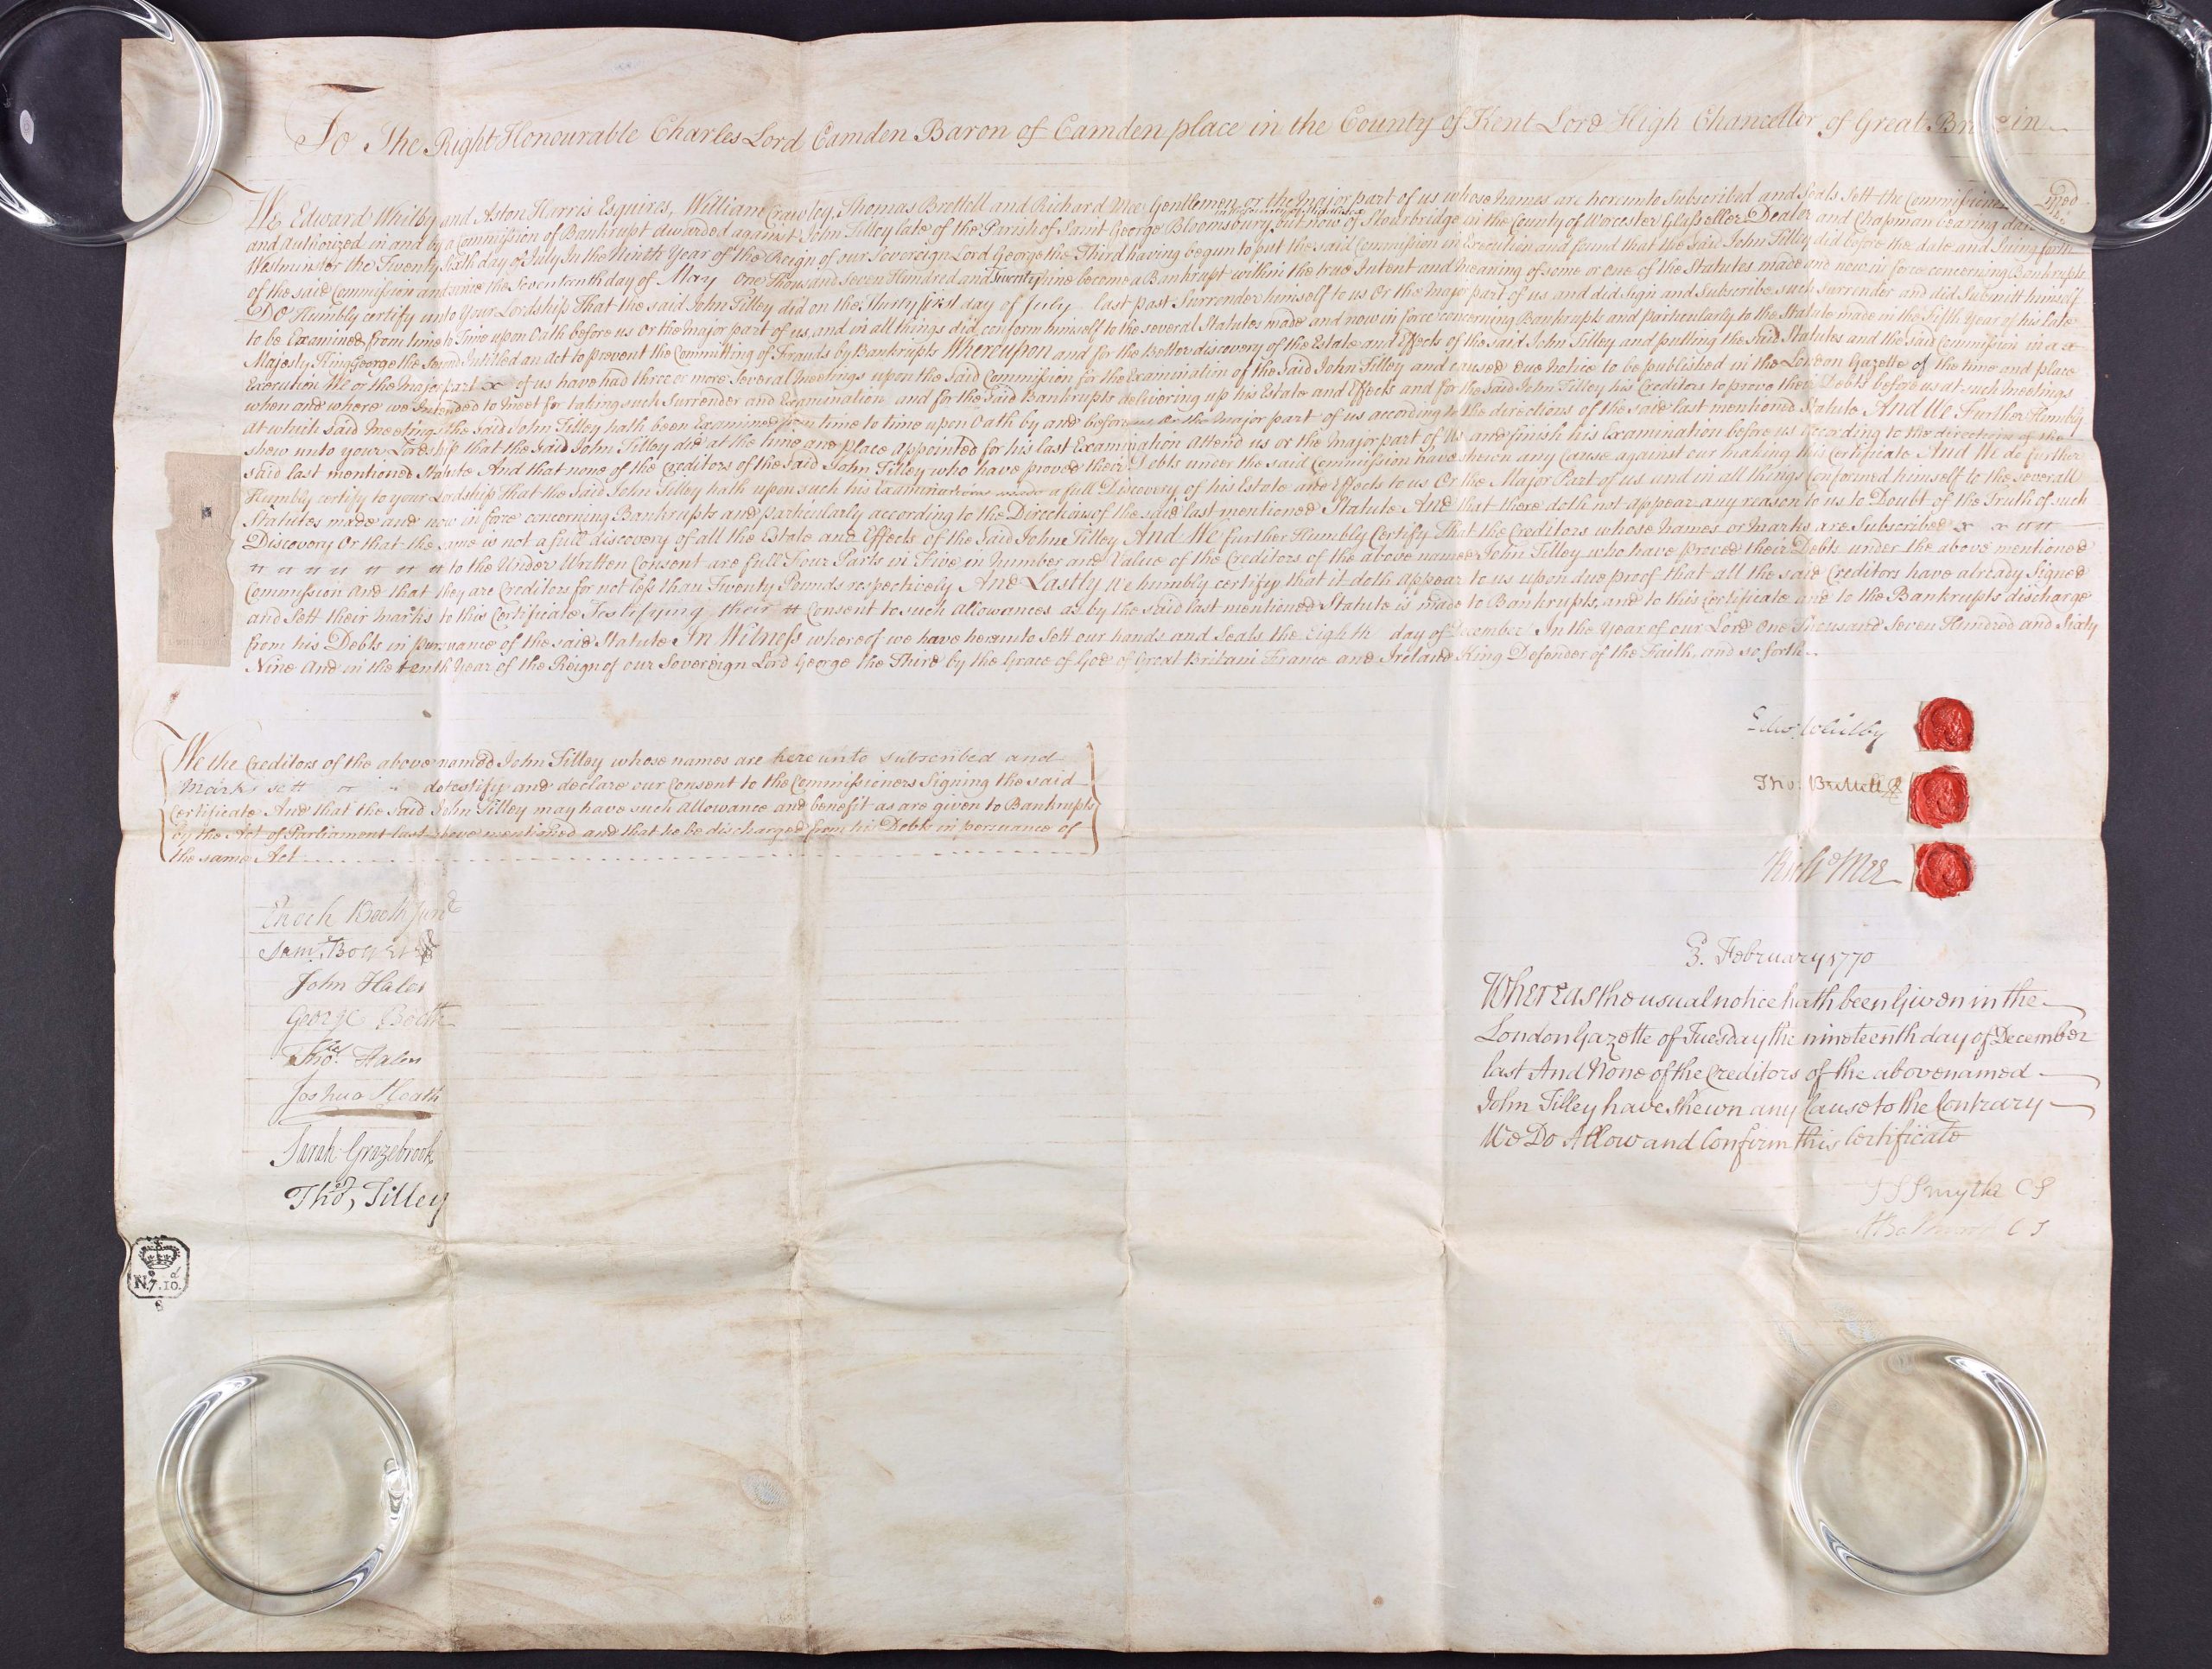 To The Right Honourable Charles Lord Camden Baron of Camden place in the County of Kent Lord High Chancellor of Great Britain
We Edward Whitby and Aston Harris Esquires, William Crawley, Thomas Brettell and Richard Mee Gentlemen or the Major part of us whose names are hereunto Subscribed and Seals Sett the Commissioners
in the County of Middlesex
and Authorized in and by a Commission of Bankrupt awarded against John Tilley late of the Parish of Saint George Bloomsbury but now of Stourbridge in the County of Worcester Glasseller Dealer and Chapman bearing date
Westminster the Twenty Sixth day of July In the Ninth Year of the Reign of our Sovereign Lord George the Third having begun to put the said Commission in Execution and found that the said John Tilley did before the date and Suing forth
of the said Commission and since the Seventeenth day of May One Thousand Seven Hundred and Twenty nine become a Bankrupt within the true Intent and Meaning of some or one of the Statutes made and now in force concerning Bankrupts
Do Humbly certify unto Your Lordship That the said John Tilley did on the Thirty first day of July last past Surrender himself to us Or the Major part of us and did Sign and Subscribe such Surrender and did Submitt himself
to be Examined from time to Time upon Oath before us Or the Major part of us, and in all things did conform himself to the several Statutes made and now in force concerning Bankrupts and particularly to the Statute made in the Fifth Year of his late
Majesty King George the Second Intitled an Act to prevent the Committing of Frauds by Bankrupts Whereupon and for the Better discovery of the Estate and Effects of the said John Tilley and putting the said Statutes and the said Commission in
Execution We or the Major part of us have had three or more Several Meetings upon the said Commission for the Examination of the said John Tilley and caused due Notice to be published in the London Gazette of the time and place
when and where we Intended to Meet for taking such Surrender and Examination and for the said Bankrupts delivering up his Estate and Effects and for the said John Tilley his Creditors to prove their Debts before us at such Meetings
At which said Meetings the said John Tilley hath been Examined from time to time upon Oath by and before us or the Major part of us according to the directions of the said last mentioned Statute And We Further Humbly
shew unto your Lordship that the said John Tilley did at the time and place Appointed for his last Examination Attend us or the Major part of Us and finish his Examination before us According to the directions of the
said last mentioned Statute And that none of the Creditors of the said John Tilley who have proved their Debts under the said Commission have shewn any Cause against our making this Certificate And We do further
Humbly certify to your Lordship that the said John Tilley hath upon such his Examinations made a full Discovery of his Estate and Effects to us Or the Major Part of us and in all things Conformed himself to the severall
Statutes made and now in force concerning Bankrupts and particularly according to the Directions of the said last mentioned Statute And that there doth not appear any reason to us to Doubt of the Truth of such
Discovery Or that the same is not a full discovery of all the Estate and Effects of the said John Tilley And We further Humbly Certify That the Creditors whose Names or Marks are Subscribed
to the Under Written Consent are full Four Parts in Five in Number and Value of the Creditors of the above named John Tilley who have proved their Debts under the above mentioned
Commission And that they are Creditors for not less than Twenty Pounds respectively And Lastly We humbly certify that it doth appear to us upon due proof that all the said Creditors have already Signed
and Sett their marks to this Certificate Testifying their Consent to such Allowances as by the said last mentioned Statute is made to Bankrupts, and to this Certificate and to the Bankrupts discharge
from his Debts in pursuance of the said Statute In Witness whereof we have hereunto Sett our hands and Seals the Eighth day of December In the Year of our Lord One Thousand Seven Hundred and Sixty
Nine And in the tenth Year of the Reign of our Sovereign Lord George the Third by the Grace of God of Great Britain France and Ireland King Defender of the Faith, and so forth
Edw. Whitby
Tho. Brettell
Richd Mee
We the Creditors of the above named John Tilley whose names are hereunto subscribed and
Marks sett do testify and declare our Consent to the Commissioners Signing the said
Certificate And that the said John Tilley may have such Allowance and benefit as are given to Bankrupts
by the Act of Parliament last above mentioned and that he be discharged from his Debts in persuance of
the same Act
Enoch Booth Junr
Saml. Boyer
John Hales
George Booth
Thos. Hales
Joshua Heath
Sarah Grazebrook
Thos, Tilley
3. February 1770
Whereas the usual notice hath been Given in the
London Gazette of Tuesday the nineteenth day of December
last And None of the Creditors of the abovenamed
John Tilley have shewn any Cause to the Contrary
We Do Allow and Confirm this Certificate
S S Smythe C S
H Bathurst C S
No 7.10.